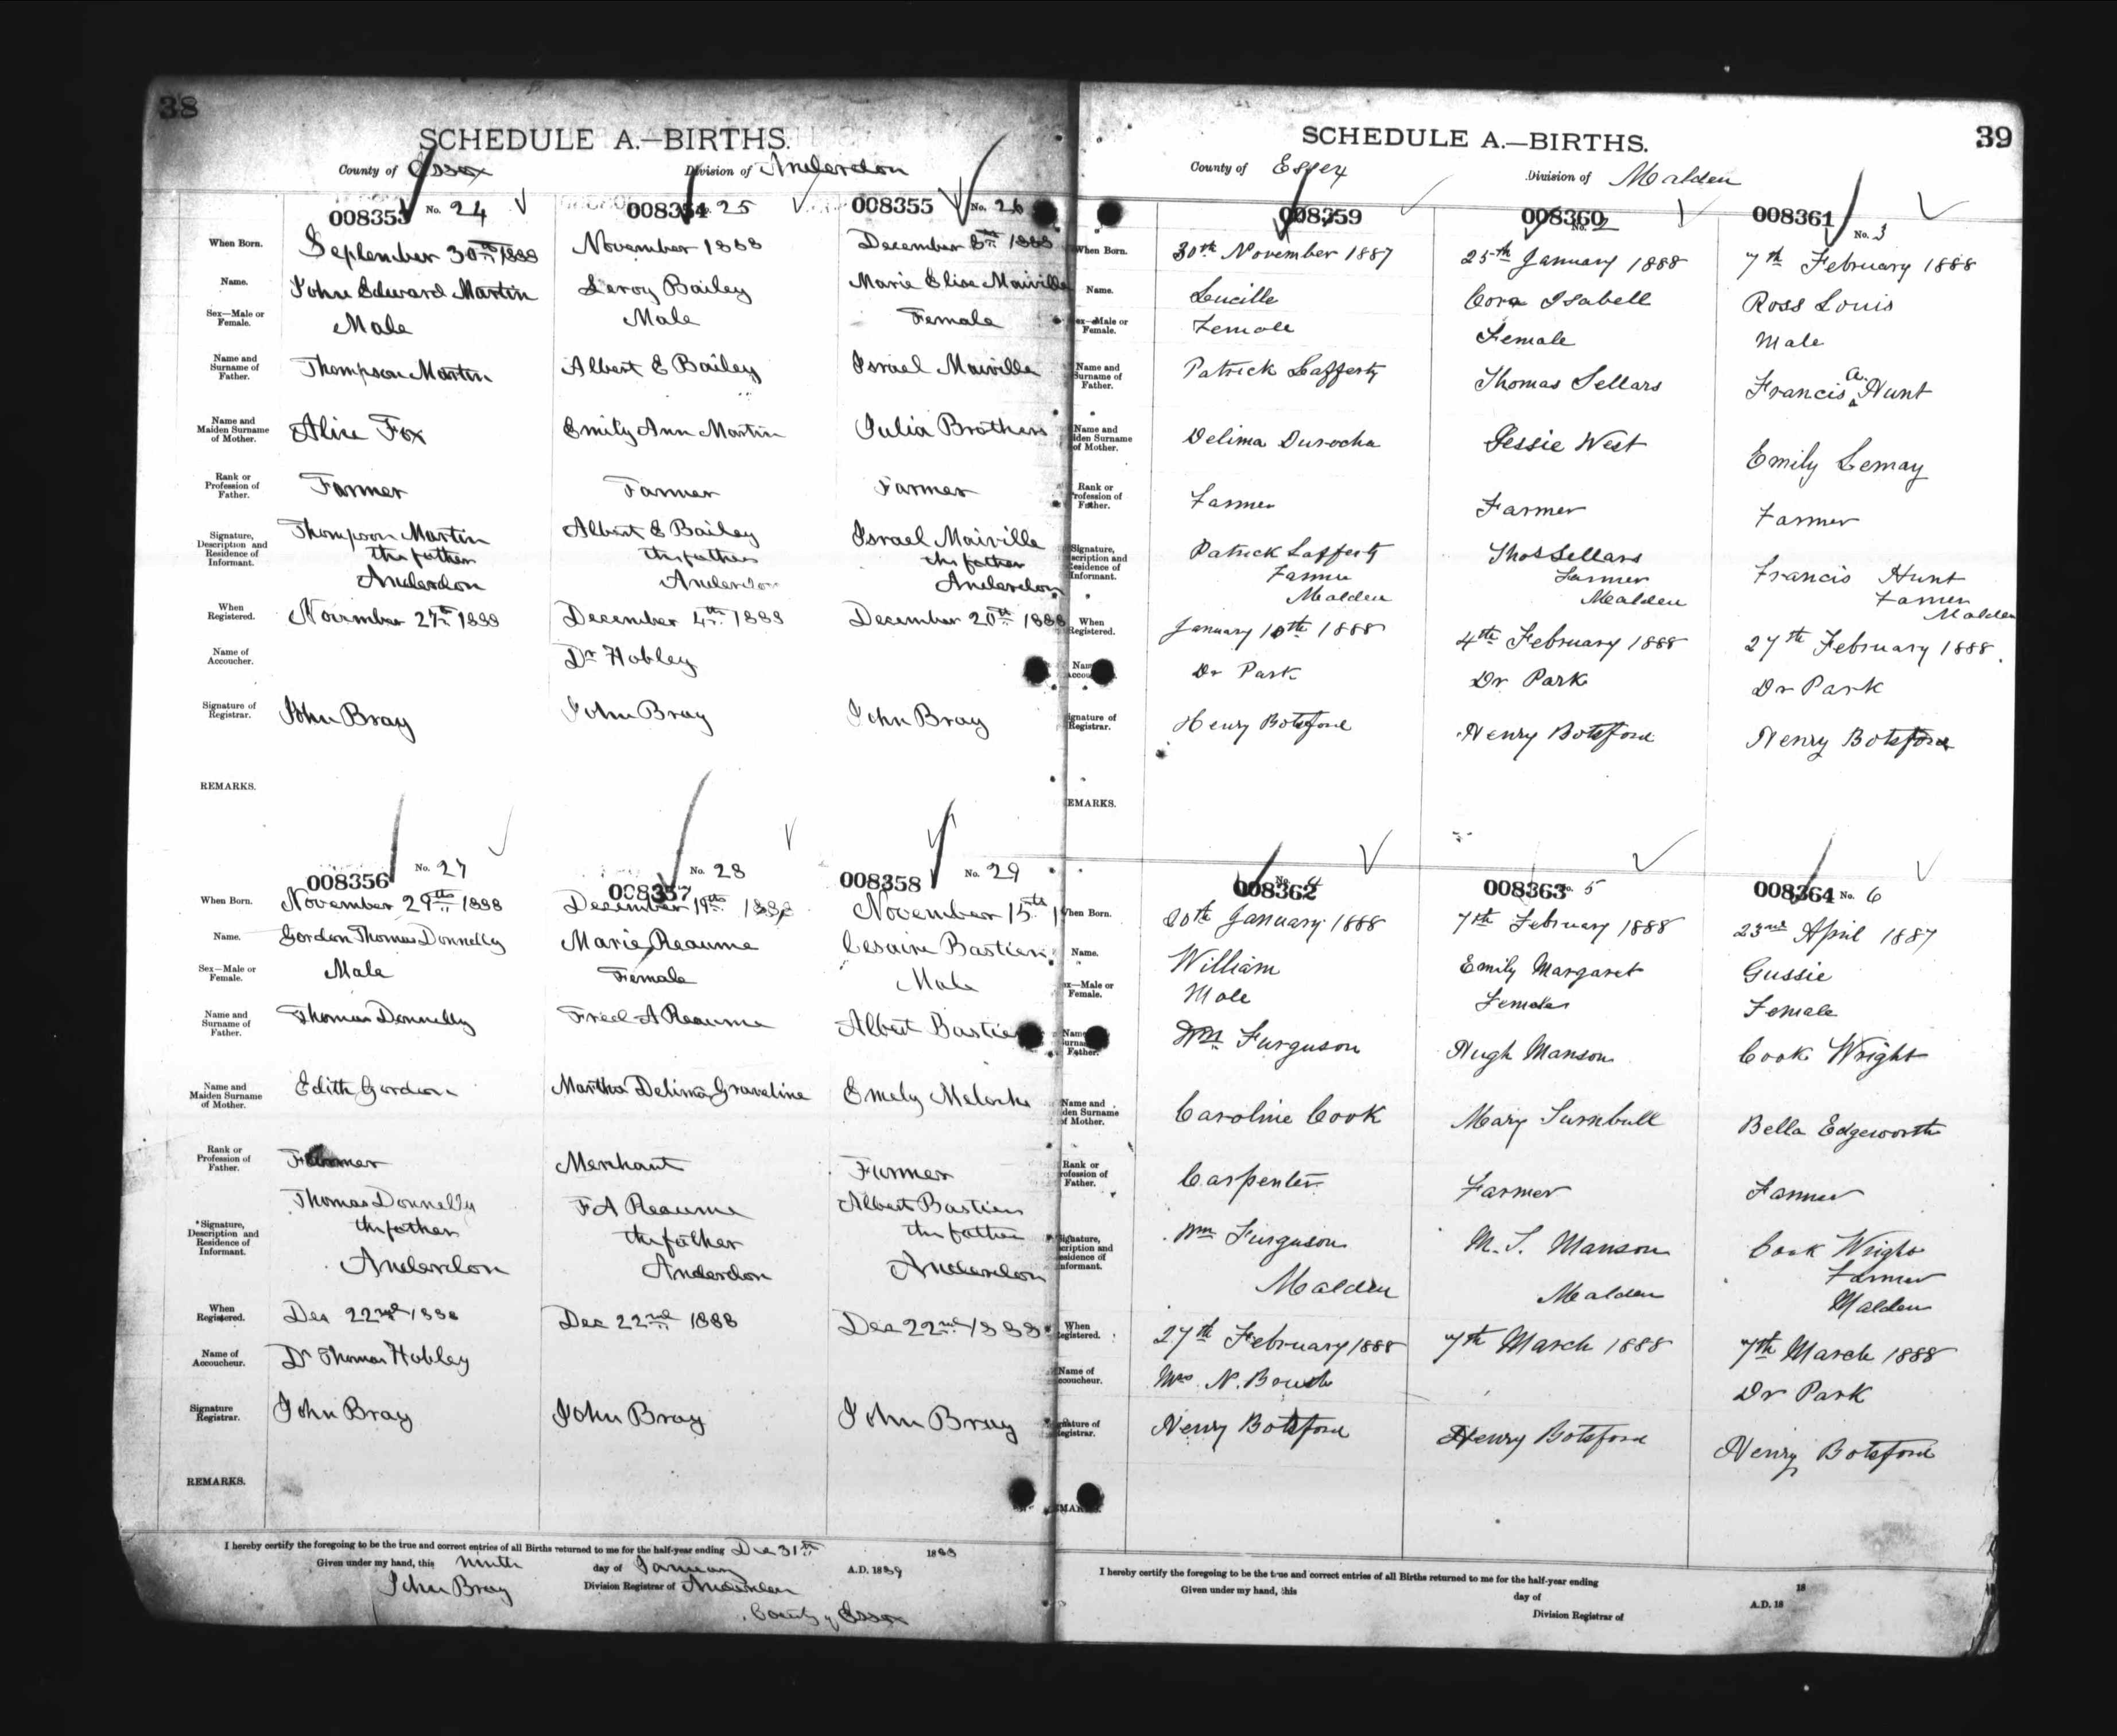 38
SCHEDULE A.—BIRTHS.
County of Essex Division of Anderdon
008353 No. 24
When Born. September 30th 1888
Name. John Edward Martin
Sex—Male or Female. Male
Name and Surname of Father. Thompson Martin
Name and Maiden Surname of Mother. Alice Fox
Rank or Profession of Father. Farmer
Signature, Description and Residence of Informant. Thompson Martin
the father
Anderdon
When Registered. November 27th 1888
Name of Accoucher.
Signature of Registrar. John Bray
REMARKS.
008354 No. 25
November 1888
Leroy Bailey
Male
Albert E Bailey
Emily Ann Martin
Farmer
Albert E Bailey
the father
Anderdon
December 4th 1888
Dr Hobley
John Bray
008355 No. 26
December 8th 1888
Marie Elise Maiville
Female
Israel Maiville
Julia Brothers
Farmer
Israel Maiville
the father
Anderdon
December 20th 1888
John Bray
008356 No. 27
When Born. November 29th 1888
Name. Gordon Thomas Donnelly
Sex—Male or Female. Male
Name and Surname of Father. Thomas Donnelly
Name and Maiden Surname of Mother. Edith Gordon
Rank or Profession of Father. Farmer
*Signature, Description and Residence of Informant. Thomas Donnelly
the father
Anderdon
When Registered. Dec 22nd 1888
Name of Accoucheur. Dr Thomas Hobley
Signature Registrar. John Bray
REMARKS.
008357 No. 28
December 19th 1888
Marie Reaume
Female
Fred A Reaume
Martha Delima Graveline
Merchant
F A Reaume
the father
Anderdon
Dec 22nd 1888
John Bray
008358 No. 29
November 15th 1
Cesaire Bastien
Male
Albert Bastien
Emely Meloche
Farmer
Albert Bastien
the father
Anderdon
Dec 22nd 1888
John Bray
I hereby certify the foregoing to be the true and correct entries of all Births returned to me for the half-year ending Dec 31st 1888
Given under my hand, this ninth day of January A.D. 1889
John Bray Division Registrar of Anderdon
County of Essex
39
SCHEDULE A.—BIRTHS.
County of Essex Division of Malden
008359
When Born. 30th November 1887
Name. Lucille
Sex—Male or Female. Female
Name and Surname of Father. Patrick Lafferty
Name and Maiden Surname of Mother. Delima Durocha
Rank or Profession of Father. Farmer
Signature, Description and Residence of Informant. Patrick Lafferty
Farmer
Malden
When Registered. January 10th 1888
Name Accou Dr Park
Signature of Registrar. Henry Botsford
REMARKS.
008360 No. 2
25th January 1888
Cora Isabell
Female
Thomas Sellars
Jessie West
Farmer
Thos Sellars
Farmer
Malden
4th February 1888
Dr Park
Henry Botsford
008361 No. 3
7th February 1888
Ross Louis
Male
Francis A. Hunt
Emily Lemay
Farmer
Francis Hunt
Farmer
Malden
27th February 1888.
Dr Park
Henry Botsford
008362 No. 4
When Born. 20th January 1888
Name. William
Sex—Male or Female. Male
Name Surname Father. Wm Furguson
Name and Maiden Surname of Mother. Caroline Cook
Rank or Profession of Father. Carpenter
Signature, Description and Residence of Informant. Wm Furguson
Malden
When Registered. 27th February 1888
Name of Accoucheur. Mrs N. Boush
Signature of Registrar. Henry Botsford
REMARKS.
008363 No. 5
7th February 1888
Emily Margaret
Female
Hugh Manson
Mary Turnbull
Farmer
M. T. Manson
Malden
7th March 1888
Henry Botsford
008364 No. 6
23rd April 1887
Gussie
Female
Cook Wright
Bella Edgeworth
Farmer
Cook Wright
Farmer
Malden
7th March 1888
Dr Park
Henry Botsford
I hereby certify the foregoing to be the true and correct entries of all Births returned to me for the half-year ending 18
Given under my hand, this day of A.D. 18
Division Registrar of